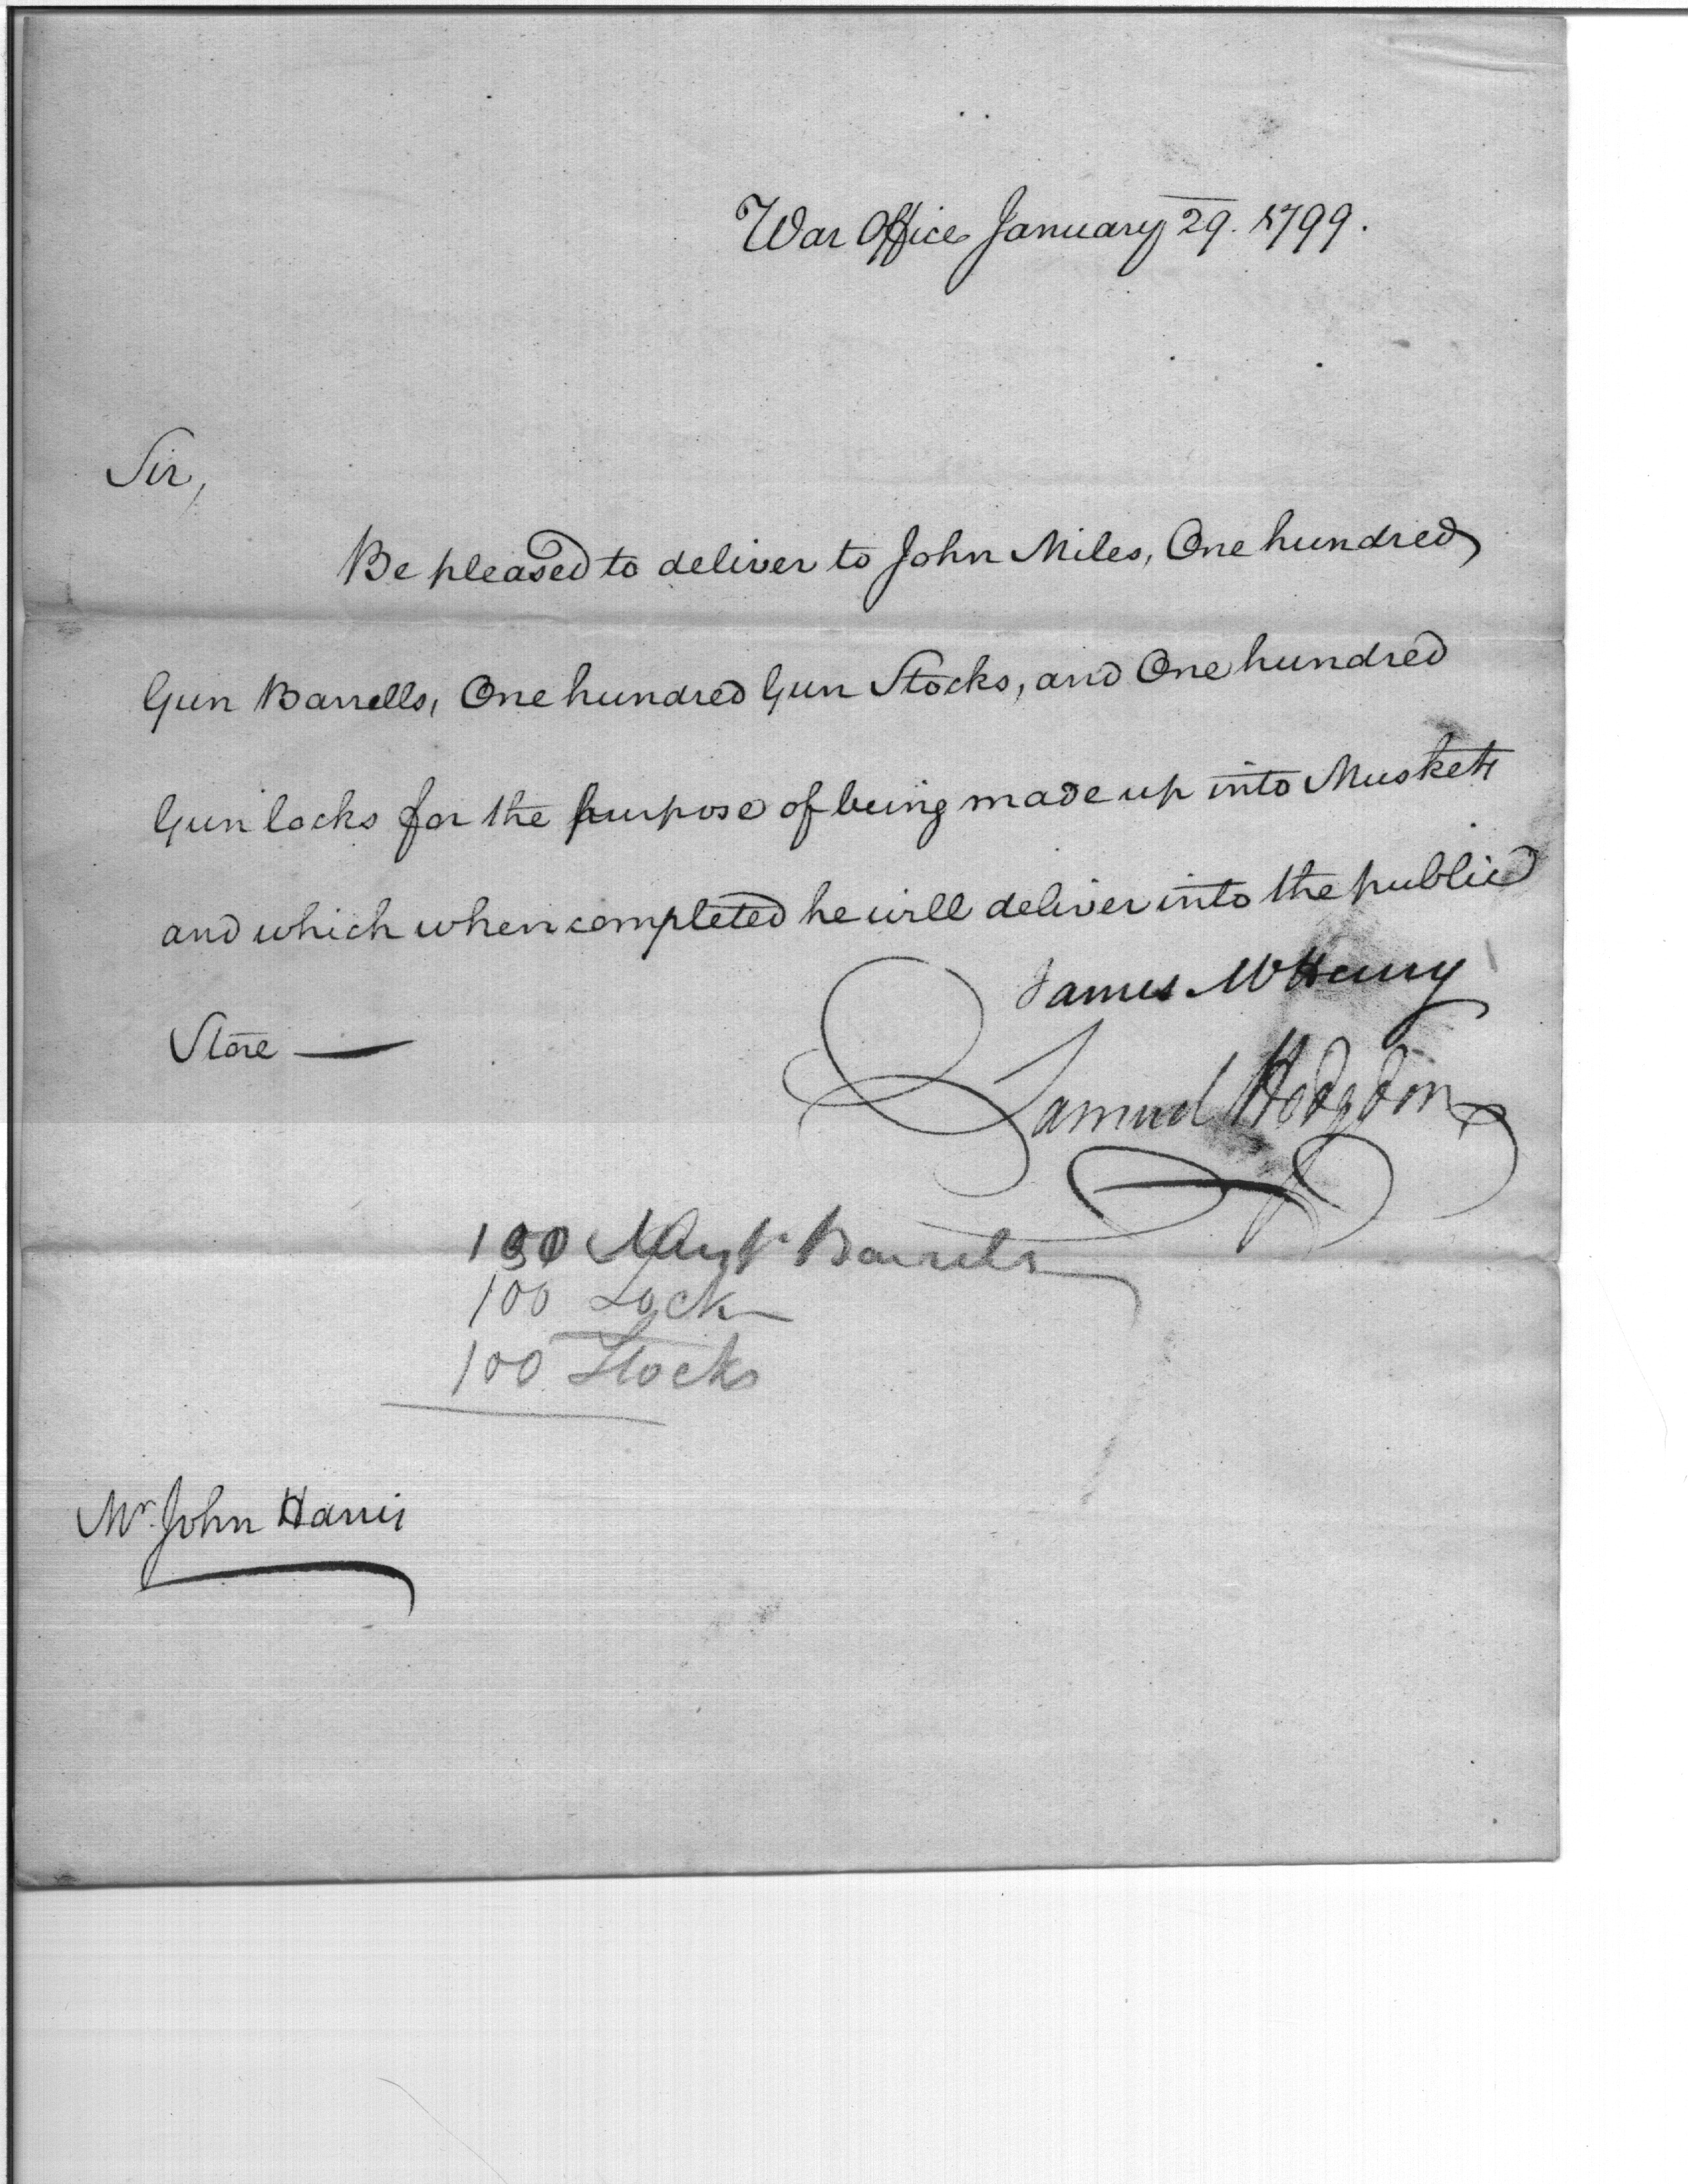 War Office January 29. 1799.
Sir,
Be pleased to deliver to John Miles, One hundred
Gun Barrells, One hundred Gun Stocks, and One hundred
Gun locks for the purpose of being made up into Muskets
and which when completed he will deliver into the public
Store —
James McHenry
Samuel Hodgdon
100 Barrels
100 Lock
100 Stocks
Mr. John Harris